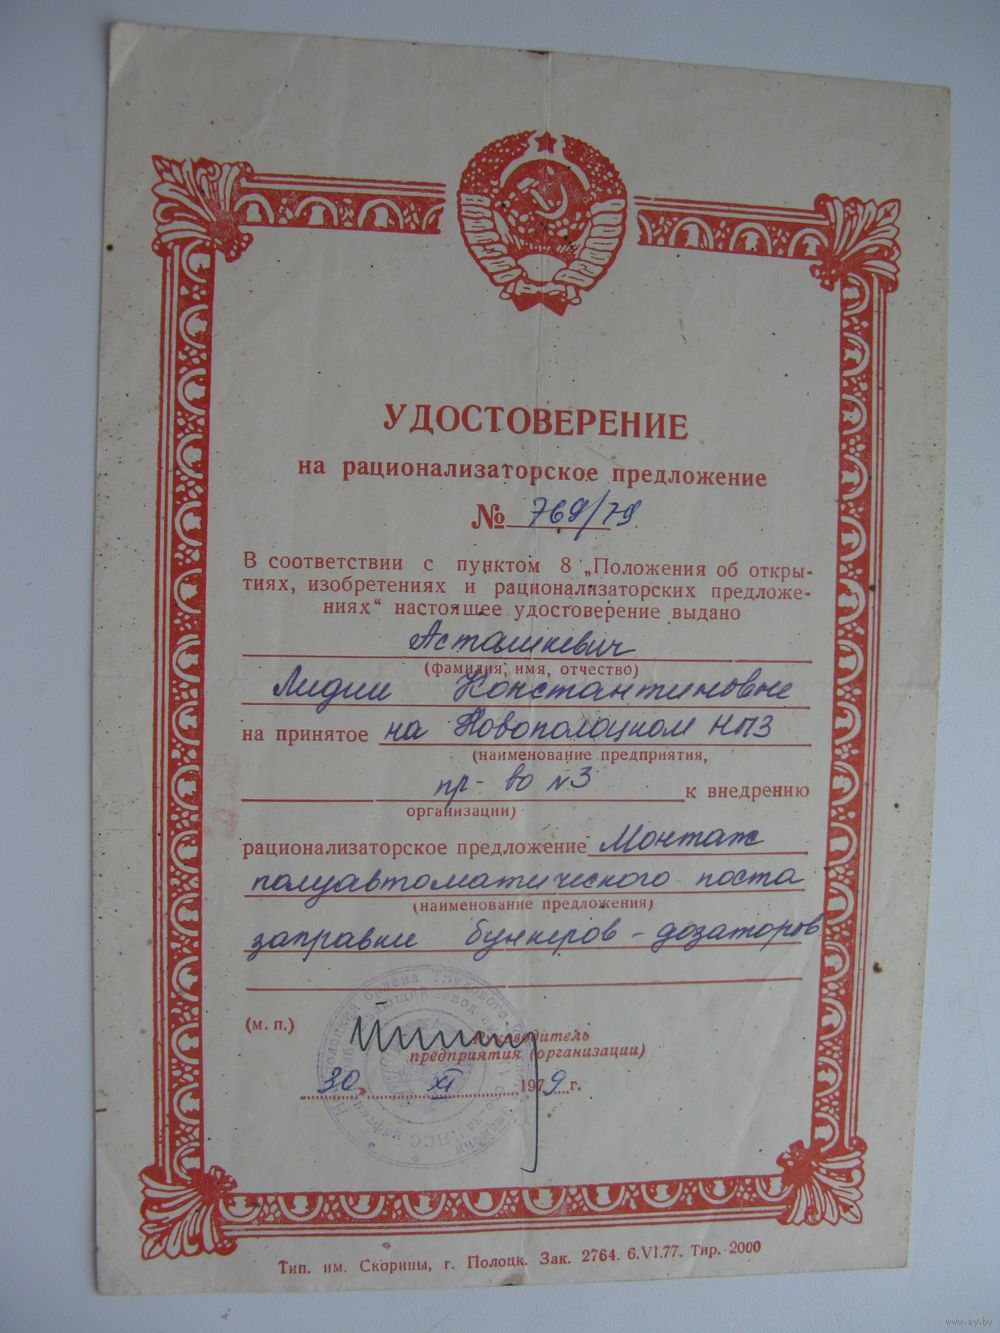 УДОСТОВЕРЕНИЕ
на рационализаторское предложение
№ 769/79
В соответствии с пунктом 8 „Положения об откры-
тиях, изобретениях и рационализаторских предложе-
ниях“ настоящее удостоверение выдано
Асташкевич
(фамилия, имя, отчество)
Лидии Константиновне
на принятое на Новополоцком НПЗ
(наименование предприятия,
пр-во №3 к внедрению
организации)
рационализаторское предложение Монтаж
полуавтоматического поста
(наименование предложения)
заправки бункеров-дозаторов
(м. п.)
Руководитель
предприятия (организации)
30 XI 1979 г.
Тип. им. Скорины, г. Полоцк. Зак. 2764. 6.VI.77. Тир. 2000
www.ay.by